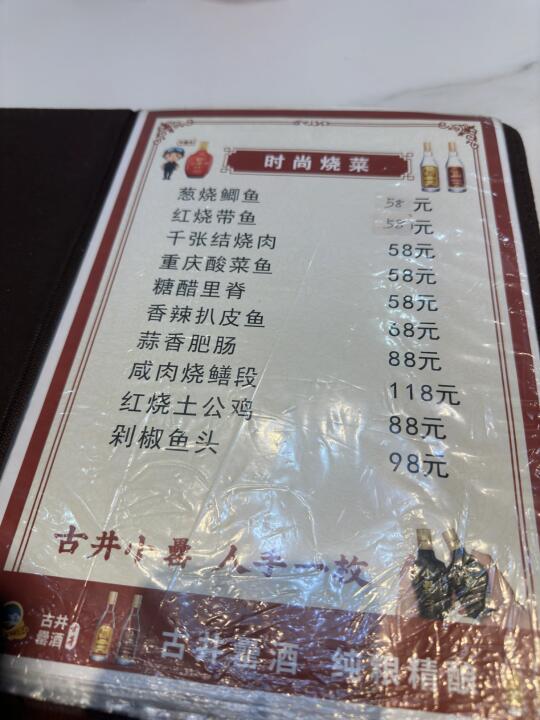 时尚烧菜
葱烧鲫鱼 58元
红烧带鱼 58元
千张结烧肉 58元
重庆酸菜鱼 58元
糖醋里脊 58元
香辣扒皮鱼 68元
蒜香肥肠 88元
咸肉烧鳝段 118元
红烧土公鸡 88元
剁椒鱼头 98元
古井小罍 人手一枚
古井
罍酒
古井罍酒 纯粮精酿